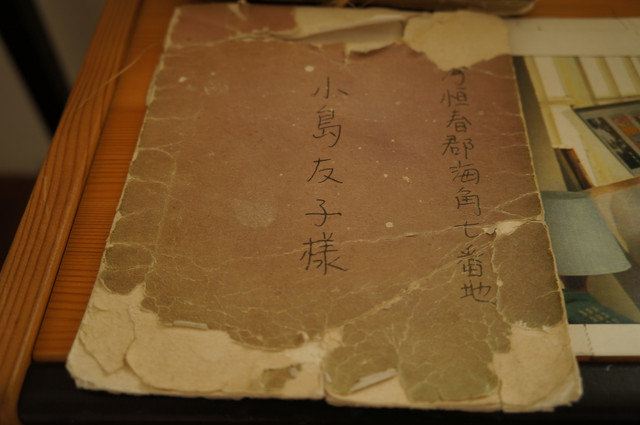 恒春郡海角七番地
小島友子様